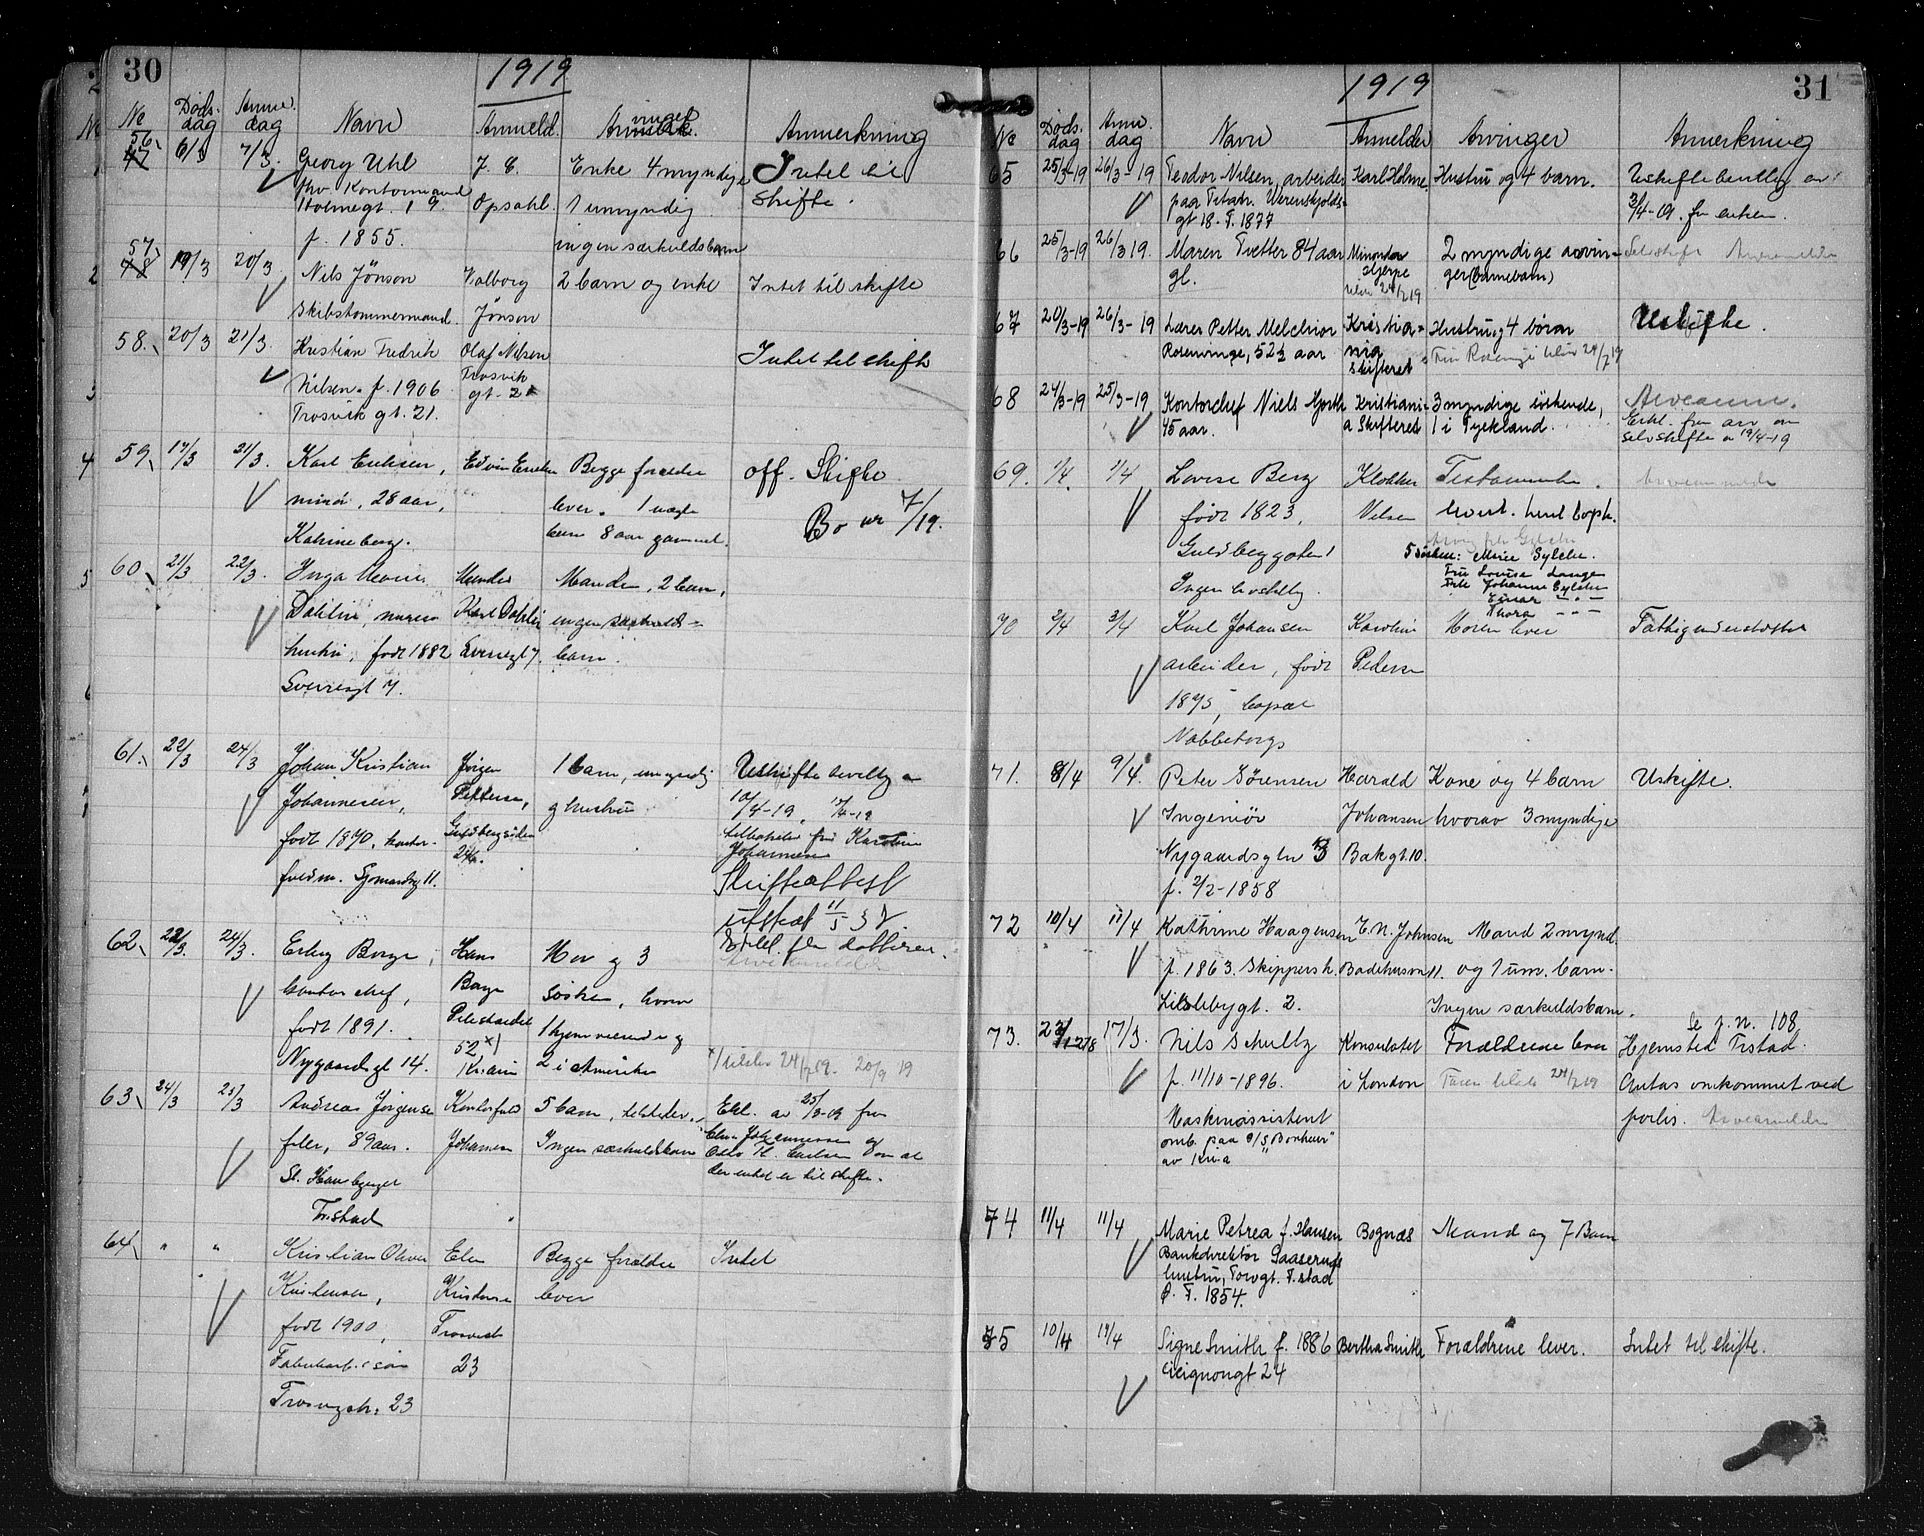 30
1919
No Døds- dag Anm. dag Navn Anmeld. Arvinger Anmerkning
56. 6/3 7/3. Georg Uhl J. C. Enke 4 myndige Intet til
fhv. Kontormand Opsahl. 1 umyndig skifte.
Holmegt. 19. ingen særkuldsbarn
f. 1855.
57. 19/3 20/3 Nils Jönson Valborg 2 barn og enke Intet til skifte
Skibstømmermand. Jönson
58. 20/3 21/3. Kristian Fredrik Olaf Nilsen Intet til skifte
Nilsen. f. 1906 Trosvik
Trosvik gt. 21. gt. 21
59. 17/3 21/3. Karl Eriksen, Edvin Eriksen Begge forældre off. Skifte.
28 aar, lever. 1 uægte Bo nr 7/19.
Katrineborg. barn 8 aar gammel.
60. 21/3 22/3. Inga Marie Manden Manden, 2 barn,
Dahlin murers Karl Dahlin ingen særkulds-
hustru, født 1882 Sverresgt 7. barn.
Sverresgt 7.
61. 22/3 24/3 Johan Kristian Jörgen 1 barn, umyndig Uskiftebevillg
Johannesen, Pettersen, g hustru 10/4-19, 14/4-19
født 1870, kontor- Guldbergsiden tilbakelev fru Karoline
fuldm. 24b. Johannesen
Skifteattest
utstedt 11/5 37
62. 22/3. 24/3. Erling Borge, Hans Mor g 3
kontorchef, Borge søsken, hvorav
født 1891. Pilestrædet 1 hjemværende g
Nygaardsgt 14. 52 x) Kr.ania 2 i Amerika x) tilslev 24/7 19. 20/9 19
63. 24/3 25/3 Andreas Jörgensen Kontorfuld 5 barn, tilstede. Erkl. av 25/3-19 fra
filer, 89 aar. Johansen Ingen særkuldsbarn Johannessen og
St. Hansbjerget Carlsen om at
Fr.stad der intet er til skifte.
64. " " Kristian Oliver Elen Begge forældre Intet
Kristensen, Kristensen lever
født 1900, Trosvik
Trosvigstr. 23 23
31
1919
No Døds- dag Anm. dag Navn Anmelder Arvinger Anmerkning
65 25/3-19 26/3-19 Teodor Nilsen, arbeider Karl Holme Hustru og 4 barn. Uskiftebevillg av
paa Titan. Werenskjolds- 3/4-19. for enken.
gt 18. F. 1877
66 25/3-19 26/3 19. Maren Tvetter 84 aar 2 myndige arvin- Selvskifte Arveanmelde
gl. Stjerpe ger (barnebarn)
24/2 19
67 20/3-19 26/3-19 Lærer Petter Melchior Kristia- Hustru g 4 børn Uskifte.
Roseninge, 52½ aar nia Skifteret
68 24/3-19 25/3-19 Kontorchef Niels North Kristiani- 3 myndige søskende, Arveanm.
45 aar. a Skifteret 1 i Tyskland. Erkl. fra arv om
selvskifte a 19/4-19
69. 1/4. 1/4 Lovise Berg Klokker Testamente. Arveanmelde
født 1823, Nilsen
Guldberggaten 1 5 søsken: Marie Gylche.
Ingen bostyby. Fru Lovise Lange
Frk Johanne Gylche
Einar - " -
Thora - " -
70 2/4 3/4 Karl Johansen Karoline Moren lever Fattigunderstøttet
arbeider, født Pedersen
1875, bopæl
Nabbetorp
71. 8/4 9/4. Peter Sørensen Harald Kone og 4 barn Uskifte.
Ingeniør Johansen hvorav 3 myndige
Nygaardsgtn 43 Bakgt. 10.
f. 2/2-1858
72 10/4 11/4 Kathrine Haagensen E. N. Johnsen Mand 2 mynd.
f. 1863. Skippersh. Badehusvn 11. og 1 um. barn.
Lislebygt. 2. Ingen særkuldsbarn.
73. 17/3. Nils Schultz Konsulatet Forældrene lever Se j. n. 108
f. 11/10-1896. i London Faren tilslev 24/7 19 Hjemsted Frstad.
Maskinassistent Antas omkommet ved
omb. paa S/S "Bonheur" forlis. Arveanmelder
av Kr.a
74 11/4 11/4 Marie Petrea f. Hansen Bognæs Mand og 7 Barn
Bankdirektør Gaaseruds
hustru, Torvgt. F.stad
Ø. F. 1854.
75 10/4 14/4 Signe Smith f. 1886 Bertha Smith Forældrene lever. Intet til skifte.
24